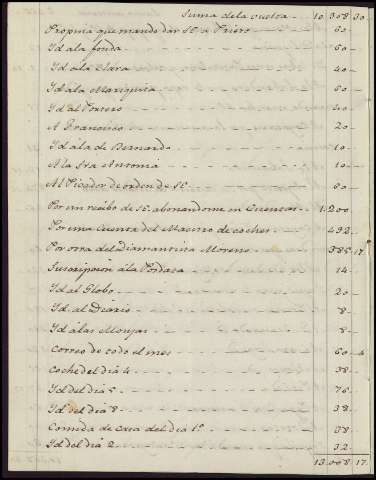 Suma de la vuelta - 10.308. 30.
Propina que mando dar S.E. a Priero 60 -
Yd a la fonda 60 -
Yd a la Clara 40 -
Yd a la Mariquita 60 -
Yd al Portero 40 -
A Francisco 20 -
Yd a la de Bernardo 10 -
A la Sra Antonia 10 -
Al Picador de orden de S.E. 80 -
Por un recibo de S.E. abonandome en Cuentas 1.200
Por una cuenta del Maestro de coches 432 -
Por otra del Diamantista Moreno 385. 17.
Suscripcion a la Posdata 14 -
Yd al Globo 20 -
Yd. al Diario 8 -
Yd a las Monjas 8 -
Correo de todo el mes 60 - 4
Coche del dia 4 38 -
Yd del dia 5 76 -
Yd del dia 8 38 -
Comida de casa del dia 1º 38 -
Yd del dia 2 32 -
13.008. 17.